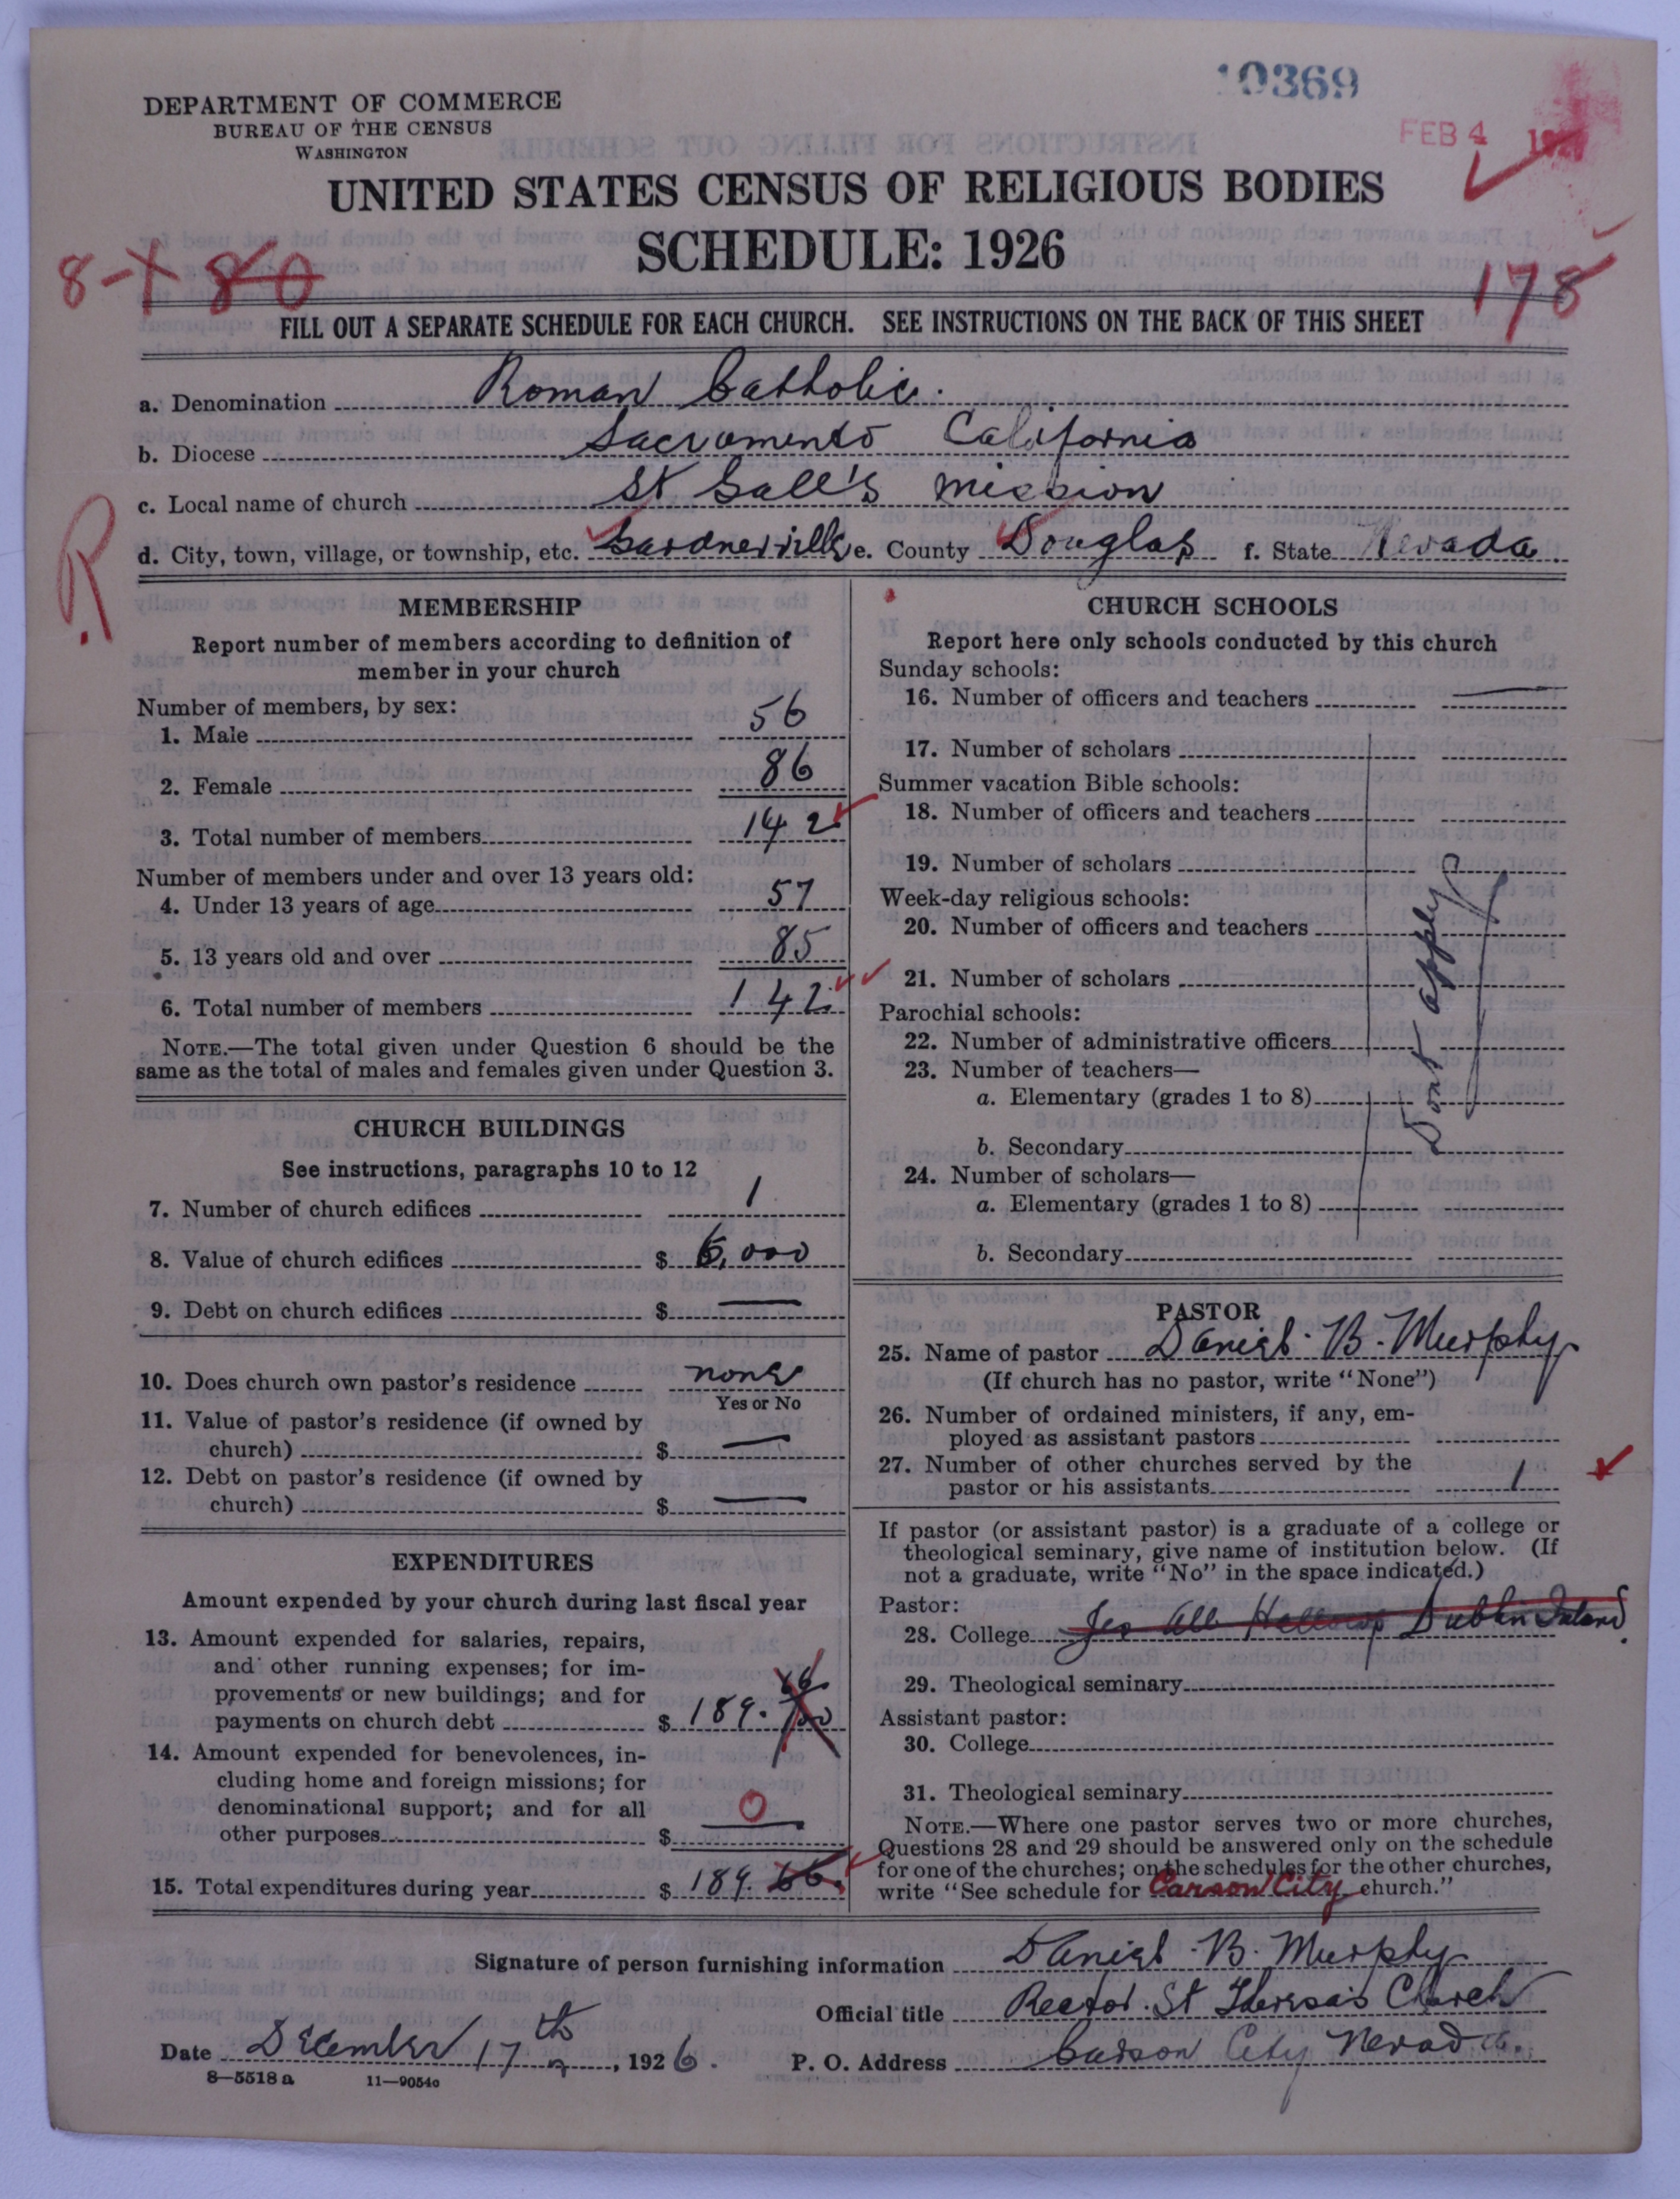 10369
DEPARTMENT OF COMMERCE
BUREAU OF THE CENSUS
WASHINGTON
FEB 4 1927
UNITED STATES CENSUS OF RELIGIOUS BODIES
SCHEDULE: 1926
8-X 80
178
FILL OUT A SEPARATE SCHEDULE FOR EACH CHURCH. SEE INSTRUCTIONS ON THE BACK OF THIS SHEET
a. Denomination Roman Catholic.
b. Diocese Sacramento California
c. Local name of church St Gall's mission
d. City, town, village, or township, etc. Gardnerville e. County Douglas f. State Nevada
R.
MEMBERSHIP
Report number of members according to definition of
member in your church
Number of members, by sex:
1. Male 56
2. Female 86
3. Total number of members 142
Number of members under and over 13 years old:
4. Under 13 years of age 57
5. 13 years old and over 85
6. Total number of members 142
NOTE.—The total given under Question 6 should be the
same as the total of males and females given under Question 3.
CHURCH BUILDINGS
See instructions, paragraphs 10 to 12
7. Number of church edifices 1
8. Value of church edifices $ 6,000
9. Debt on church edifices $ —
10. Does church own pastor's residence none
Yes or No
11. Value of pastor's residence (if owned by
church) $ —
12. Debt on pastor's residence (if owned by
church) $ —
EXPENDITURES
Amount expended by your church during last fiscal year
13. Amount expended for salaries, repairs,
and other running expenses; for im-
provements or new buildings; and for
payments on church debt $ 189. 66/100
14. Amount expended for benevolences, in-
cluding home and foreign missions; for
denominational support; and for all
other purposes $ 0
15. Total expenditures during year $ 189. 66.
CHURCH SCHOOLS
Report here only schools conducted by this church
Sunday schools:
16. Number of officers and teachers —
17. Number of scholars
Summer vacation Bible schools:
18. Number of officers and teachers
19. Number of scholars
Week-day religious schools:
20. Number of officers and teachers
21. Number of scholars
Parochial schools:
22. Number of administrative officers
23. Number of teachers—
a. Elementary (grades 1 to 8)
b. Secondary
24. Number of scholars—
a. Elementary (grades 1 to 8)
b. Secondary
Dont apply
PASTOR
25. Name of pastor Daniel B. Murphy
(If church has no pastor, write "None")
26. Number of ordained ministers, if any, em-
ployed as assistant pastors
27. Number of other churches served by the
pastor or his assistants 1
If pastor (or assistant pastor) is a graduate of a college or
theological seminary, give name of institution below. (If
not a graduate, write "No" in the space indicated.)
Pastor:
28. College All Hallows Dublin Ireland.
29. Theological seminary
Assistant pastor:
30. College
31. Theological seminary
NOTE.—Where one pastor serves two or more churches,
Questions 28 and 29 should be answered only on the schedule
for one of the churches; on the schedules for the other churches,
write "See schedule for Carson City church."
Signature of person furnishing information Daniel B. Murphy
Official title Rector. St Theresa's Church
Date December 17th, 1926. P. O. Address Carson City Nevada.
8—5518 a 11—9054c